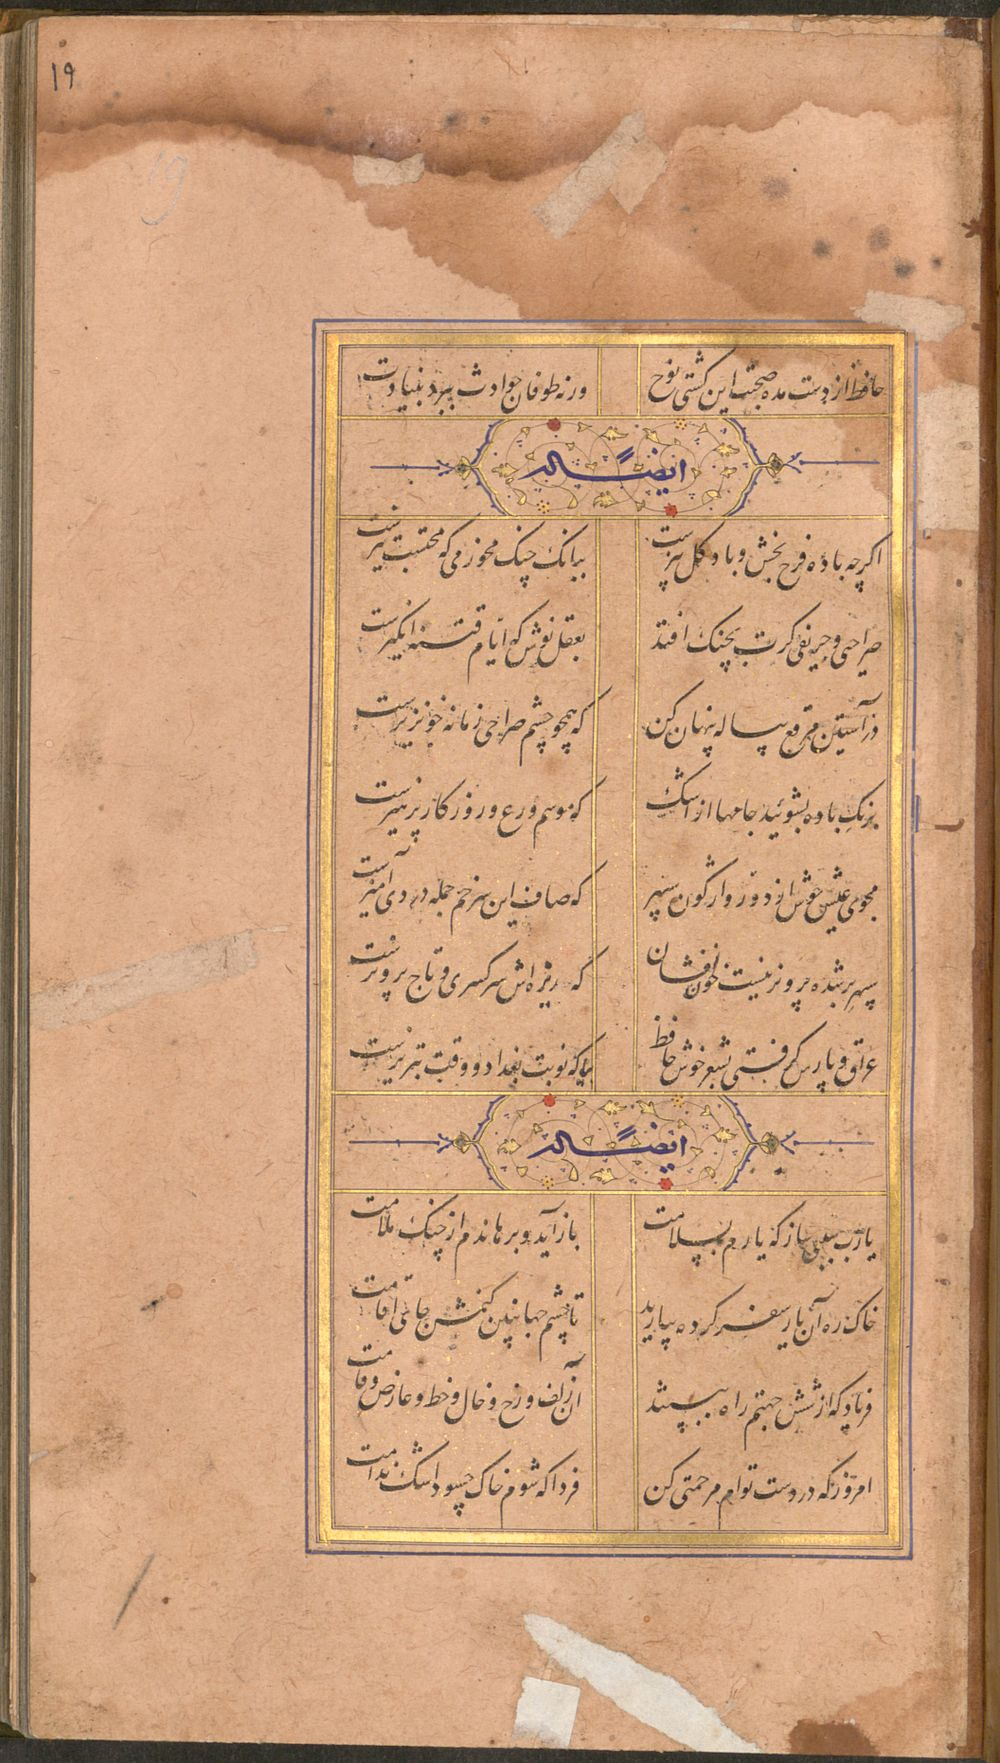 ۱۹
19
حافظ از دست مده صحبت این کشتی نوح ورنه طوفان حوادث ببرد بنیادت
ایضاً له
اکرچه باده فرح بخش و باد کل‌بیزست ببانک چنک مخور می که محتسب تیزست
صراحی و حریفی کرت بچنک افتد بعقل نوش که ایام فتنه انکیزست
در آستین مرقع پیاله پنهان کن که همچو چشم صراحی زمانه خونریزست
برنک باده بشوئید جامها از اشک که موسم ورع و روزکار پرهیزست
مجوی عیش خوش از دور وارکون سپهر که صاف این سر خم جمله دردی آمیزست
سپهر بر شده پرویزنیست خون افشان که ریزه‌اش سر کسری و تاج پرویزست
عراق و پارس کرفتی بشعر خوش حافظ بیا که نوبت بغداد و وقت تبریزست
ایضاً له
یا رب سببی ساز که یارم بسلامت باز آید و برهاندم از چنک ملامت
خاک ره آن یار سفر کرده بیارید تا چشم جهان بین کنمش جای اقامت
فریاد که از شش جهتم راه ببستند آن زلف و رخ و خال و خط و عارض و قامت
امروز که در دست توام مرحمتی کن فردا که شوم خاک چه سود اشک ندامت